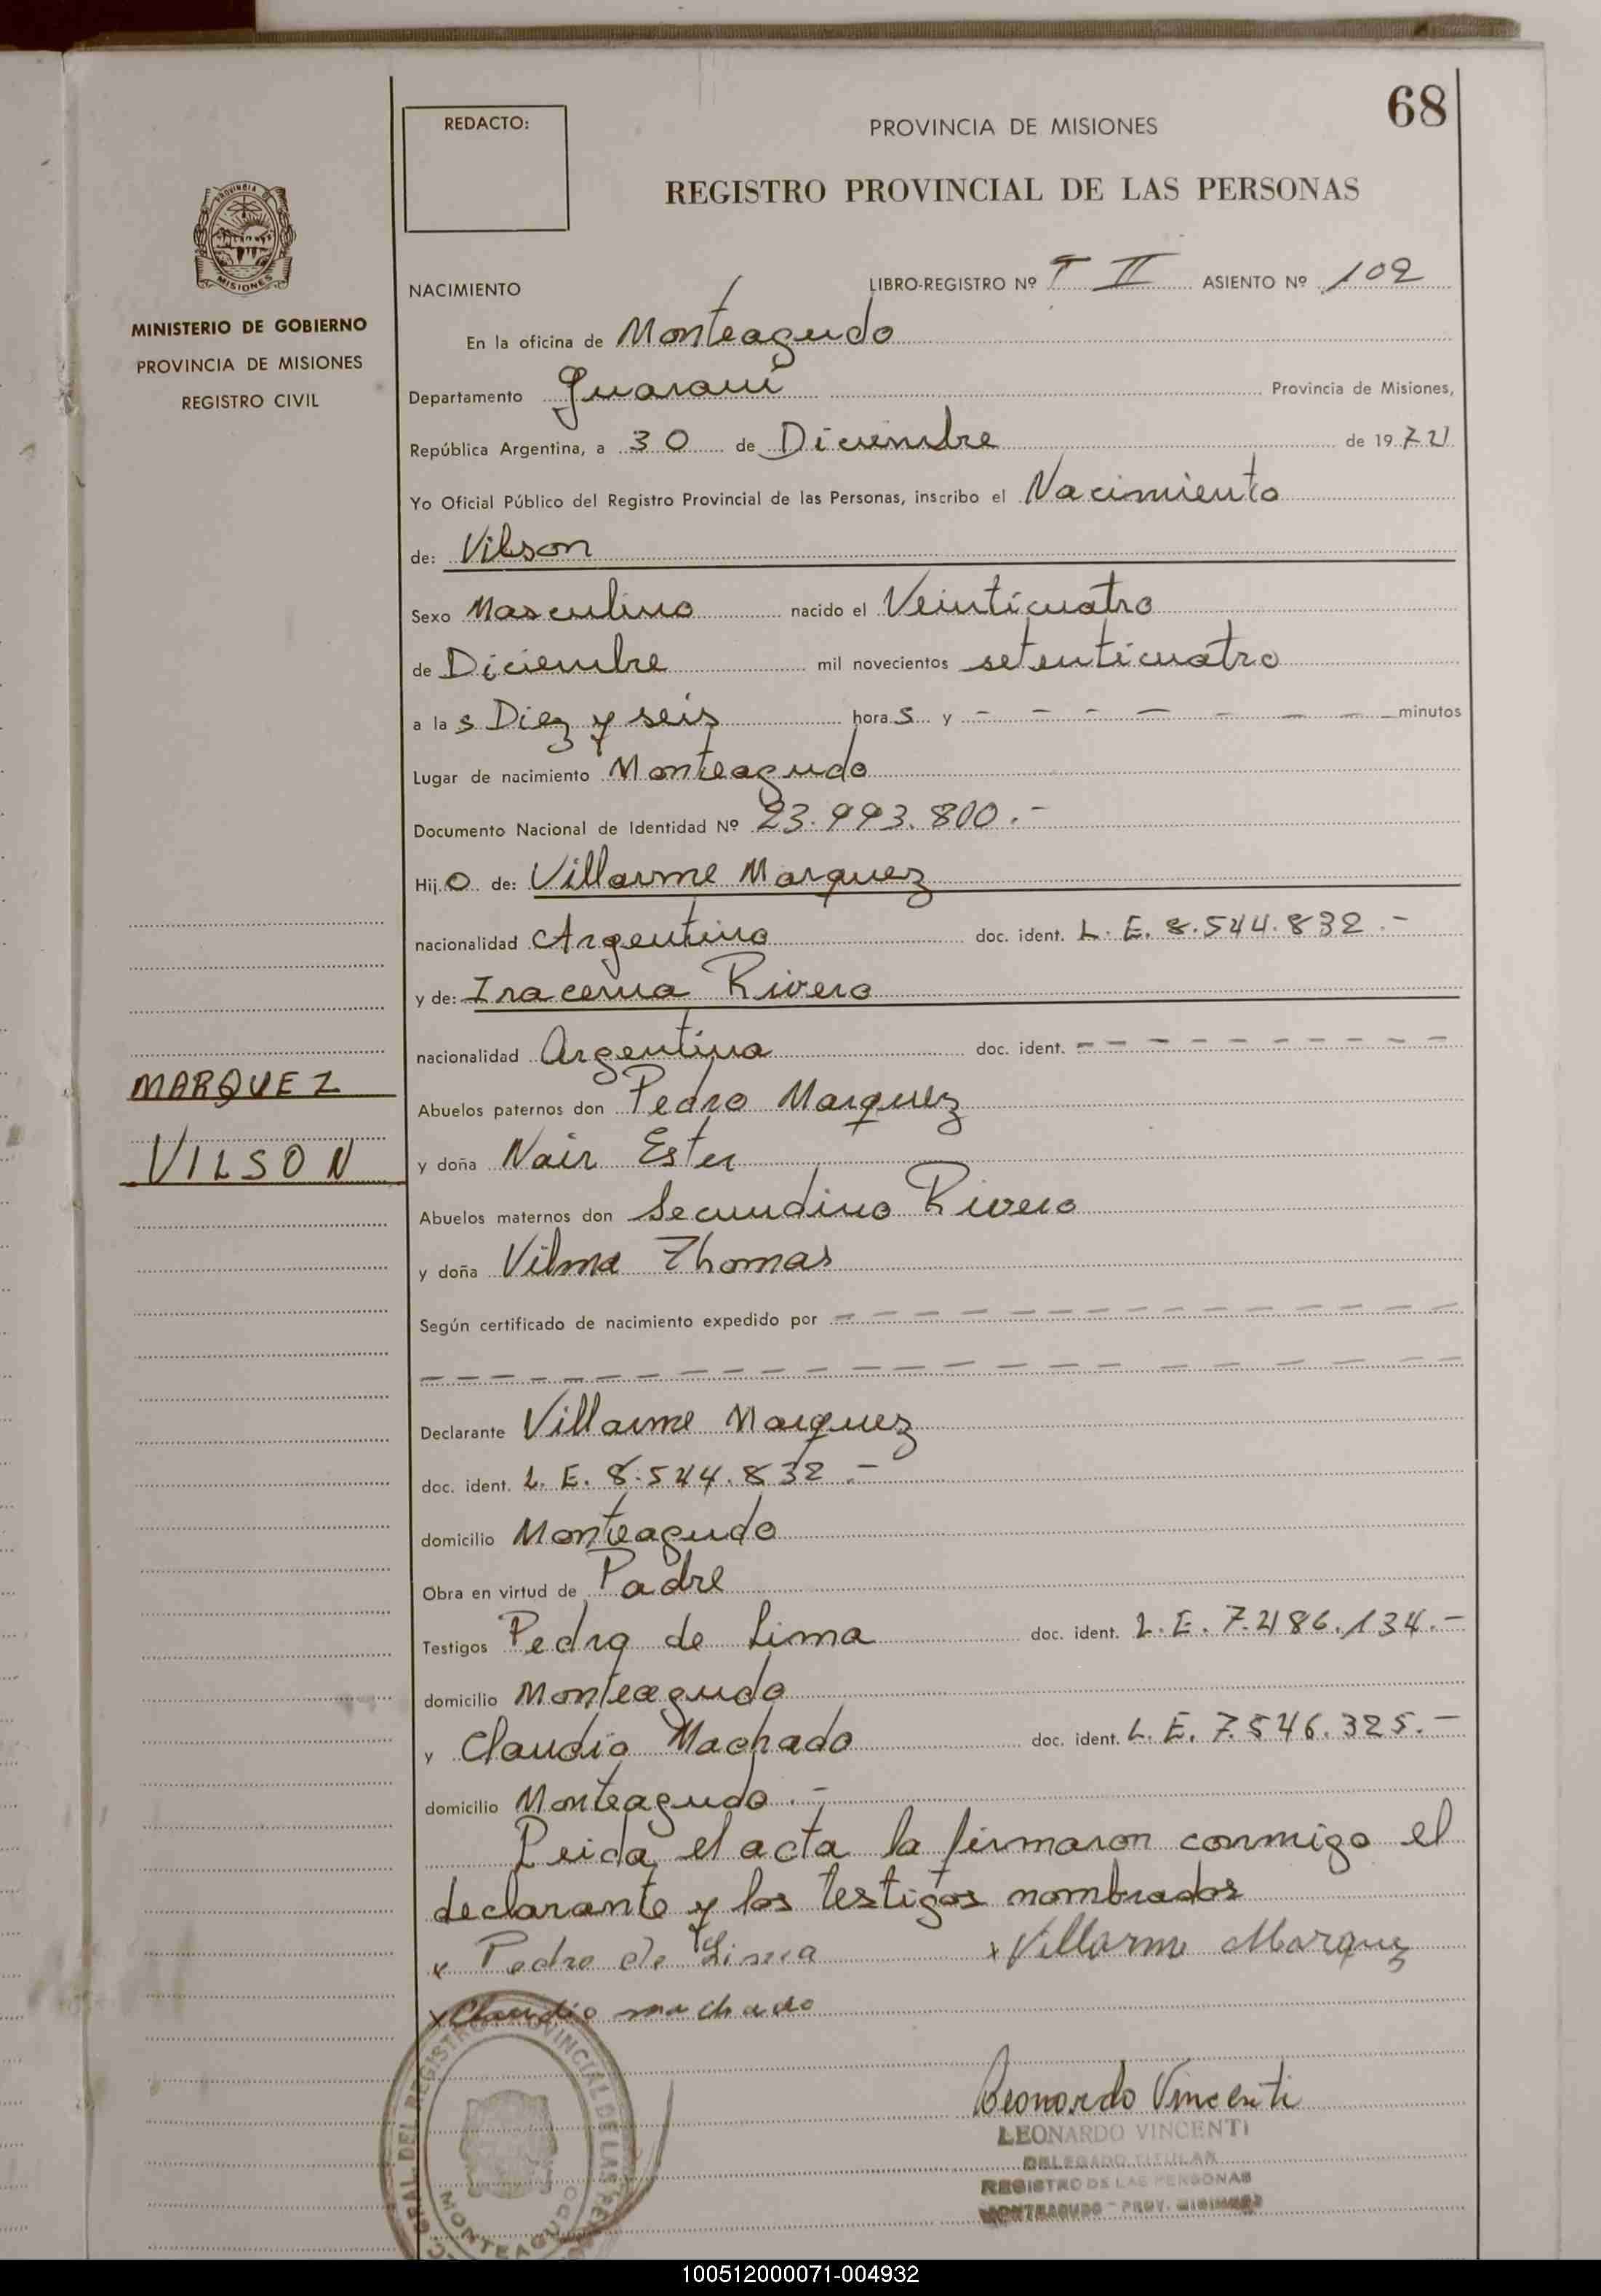 68
REDACTO:
PROVINCIA DE MISIONES
REGISTRO PROVINCIAL DE LAS PERSONAS
PROVINCIA
MISIONES
MINISTERIO DE GOBIERNO
PROVINCIA DE MISIONES
REGISTRO CIVIL
NACIMIENTO LIBRO-REGISTRO Nº T II ASIENTO Nº 102
En la oficina de Monteagudo
Departamento Guaraní Provincia de Misiones,
República Argentina, a 30 de Diciembre de 197
Yo Oficial Público del Registro Provincial de las Personas, inscribo el Nacimiento
de: Vilson
Sexo Masculino nacido el Veinticuatro
de Diciembre mil novecientos setenticuatro
a las Diez y seis horas y - - - - - - - minutos
Lugar de nacimiento Monteagudo
Documento Nacional de Identidad Nº 23.993.800.-
Hijo de: Villarme Marquez
nacionalidad Argentino doc. ident. L. E. 8.544.832 -
y de: Iracema Rivero
nacionalidad Argentina doc. ident. - - - - - - - - - -
MARQUEZ
VILSON
Abuelos paternos don Pedro Marquez
y doña Nair Ester
Abuelos maternos don Secundino Rivero
y doña Vilma Thomas
Según certificado de nacimiento expedido por
Declarante Villarme Marquez
doc. ident. L. E. 8.544.832 .-
domicilio Monteagudo
Obra en virtud de Padre
Testigos Pedro de Lima doc. ident. L. E. 7.486.134.-
domicilio Monteagudo
y Claudio Machado doc. ident. L. E. 7.546.325.-
domicilio Monteagudo.-
Leida el acta la firmaron conmigo el
declarante y los testigos nombrados
x Pedro de Lima x Villarme Marquez
x Claudio machado
Leonardo Vincenti
LEONARDO VINCENTI
DELEGADO TITULAR
REGISTRO DE LAS PERSONAS
MONTEAGUDO - PROV. MISIONES
GRAL. DEL REGISTRO PROVINCIAL DE LAS
MONTEAGUDO
100512000071-004932